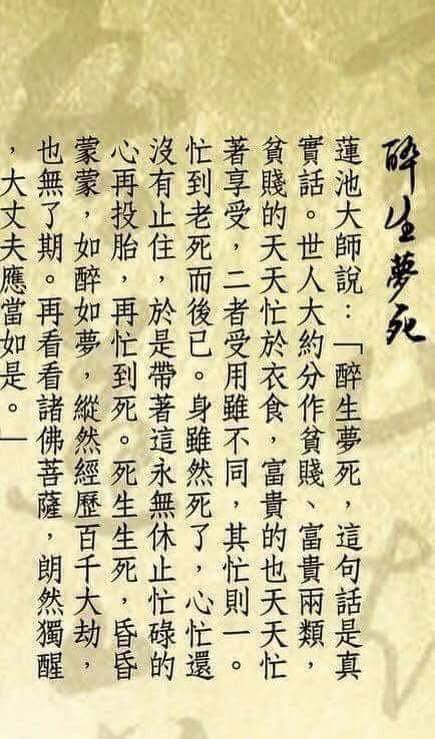 醉生夢死
蓮池大師說：「醉生夢死，這句話是真
實話。世人大約分作貧賤、富貴兩類，
貧賤的天天忙於衣食，富貴的也天天忙
著享受，二者受用雖不同，其忙則一。
忙到老死而後已。身雖然死了，心忙還
沒有止住，於是帶著這永無休止忙碌的
心再投胎，再忙到死。死生生死，昏昏
蒙蒙，如醉如夢，縱然經歷百千大劫，
也無了期。再看看諸佛菩薩，朗然獨醒
，大丈夫應當如是。」